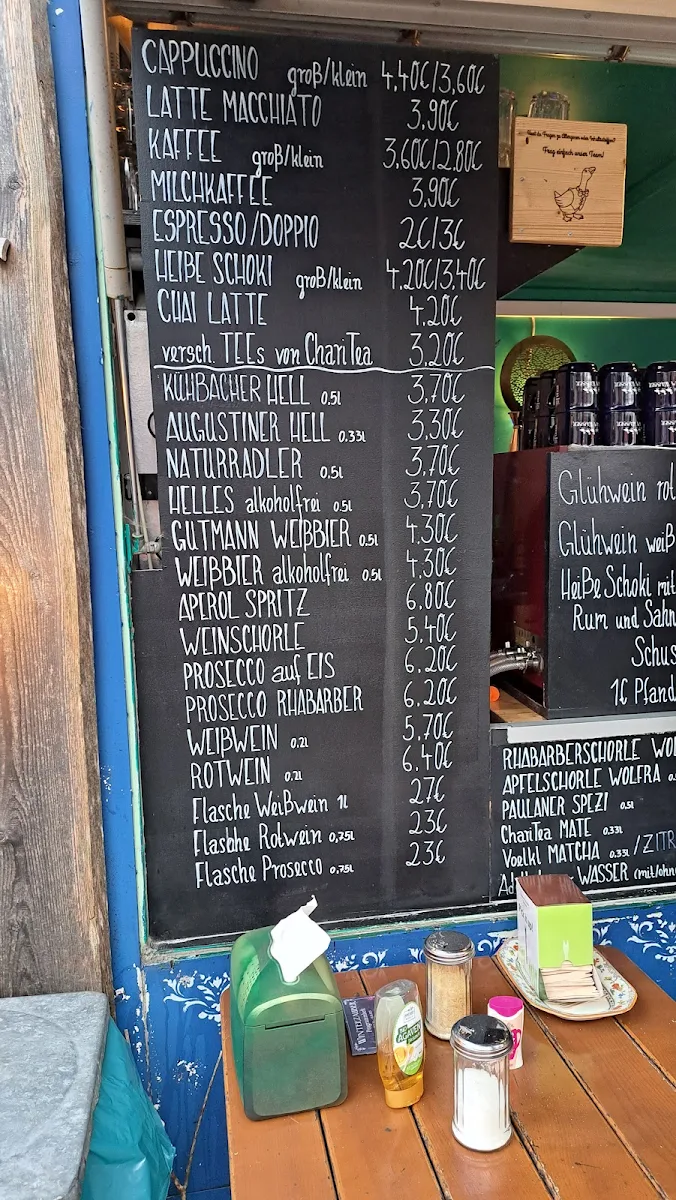 CAPPUCCINO groß/klein 4,40€/3,60€
LATTE MACCHIATO 3,90€
KAFFEE groß/klein 3,60€/2.80€
MILCHKAFFEE 3,90€
ESPRESSO/DOPPIO 2€/3€
HEIßE SCHOKI groß/klein 4.20€/3,40€
CHAI LATTE 4.20€
versch. TEEs von ChariTea 3.20€
KÜHBACHER HELL 0.5l 3,70€
AUGUSTINER HELL 0.33l 3,30€
NATURRADLER 0.5l 3,70€
HELLES alkoholfrei 0.5l 3,70€
GUTMANN WEIßBIER 0.5l 4.30€
WEIßBIER alkoholfrei 0.5l 4.30€
APEROL SPRITZ 6.80€
WEINSCHORLE 5.40€
PROSECCO auf EIS 6.20€
PROSECCO RHABARBER 6.20€
WEIßWEIN 0.2l 5.70€
ROTWEIN 0.2l 6.40€
Flasche Weißwein 1l 27€
Flasche Rotwein 0,75l 23€
Flasche Prosecco 0,75l 23€
Frag einfach unser Team!
Glühwein rot
Glühwein weiß
Heiße Schoki mit
Rum und Sahn
Schus
1€ Pfand
RHABARBERSCHORLE WOL
APFELSCHORLE WOLFRA 0.5
PAULANER SPEZI 0.5l
ChariTea MATE 0.33l
Voelkl MATCHA 0.33l /ZITR
WASSER (mit/ohne
WINTERZAUBER
AGAVEN